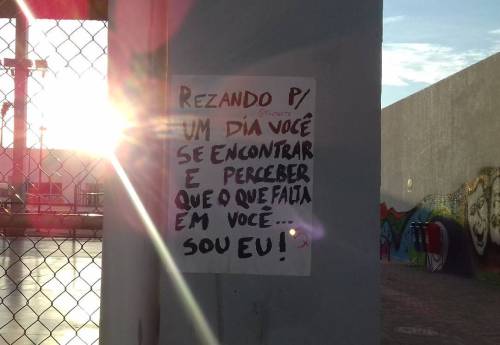 REZANDO P/
UM DIA VOCÊ
SE ENCONTRAR
E PERCEBER
QUE O QUE FALTA
EM VOCÊ...
SOU EU!